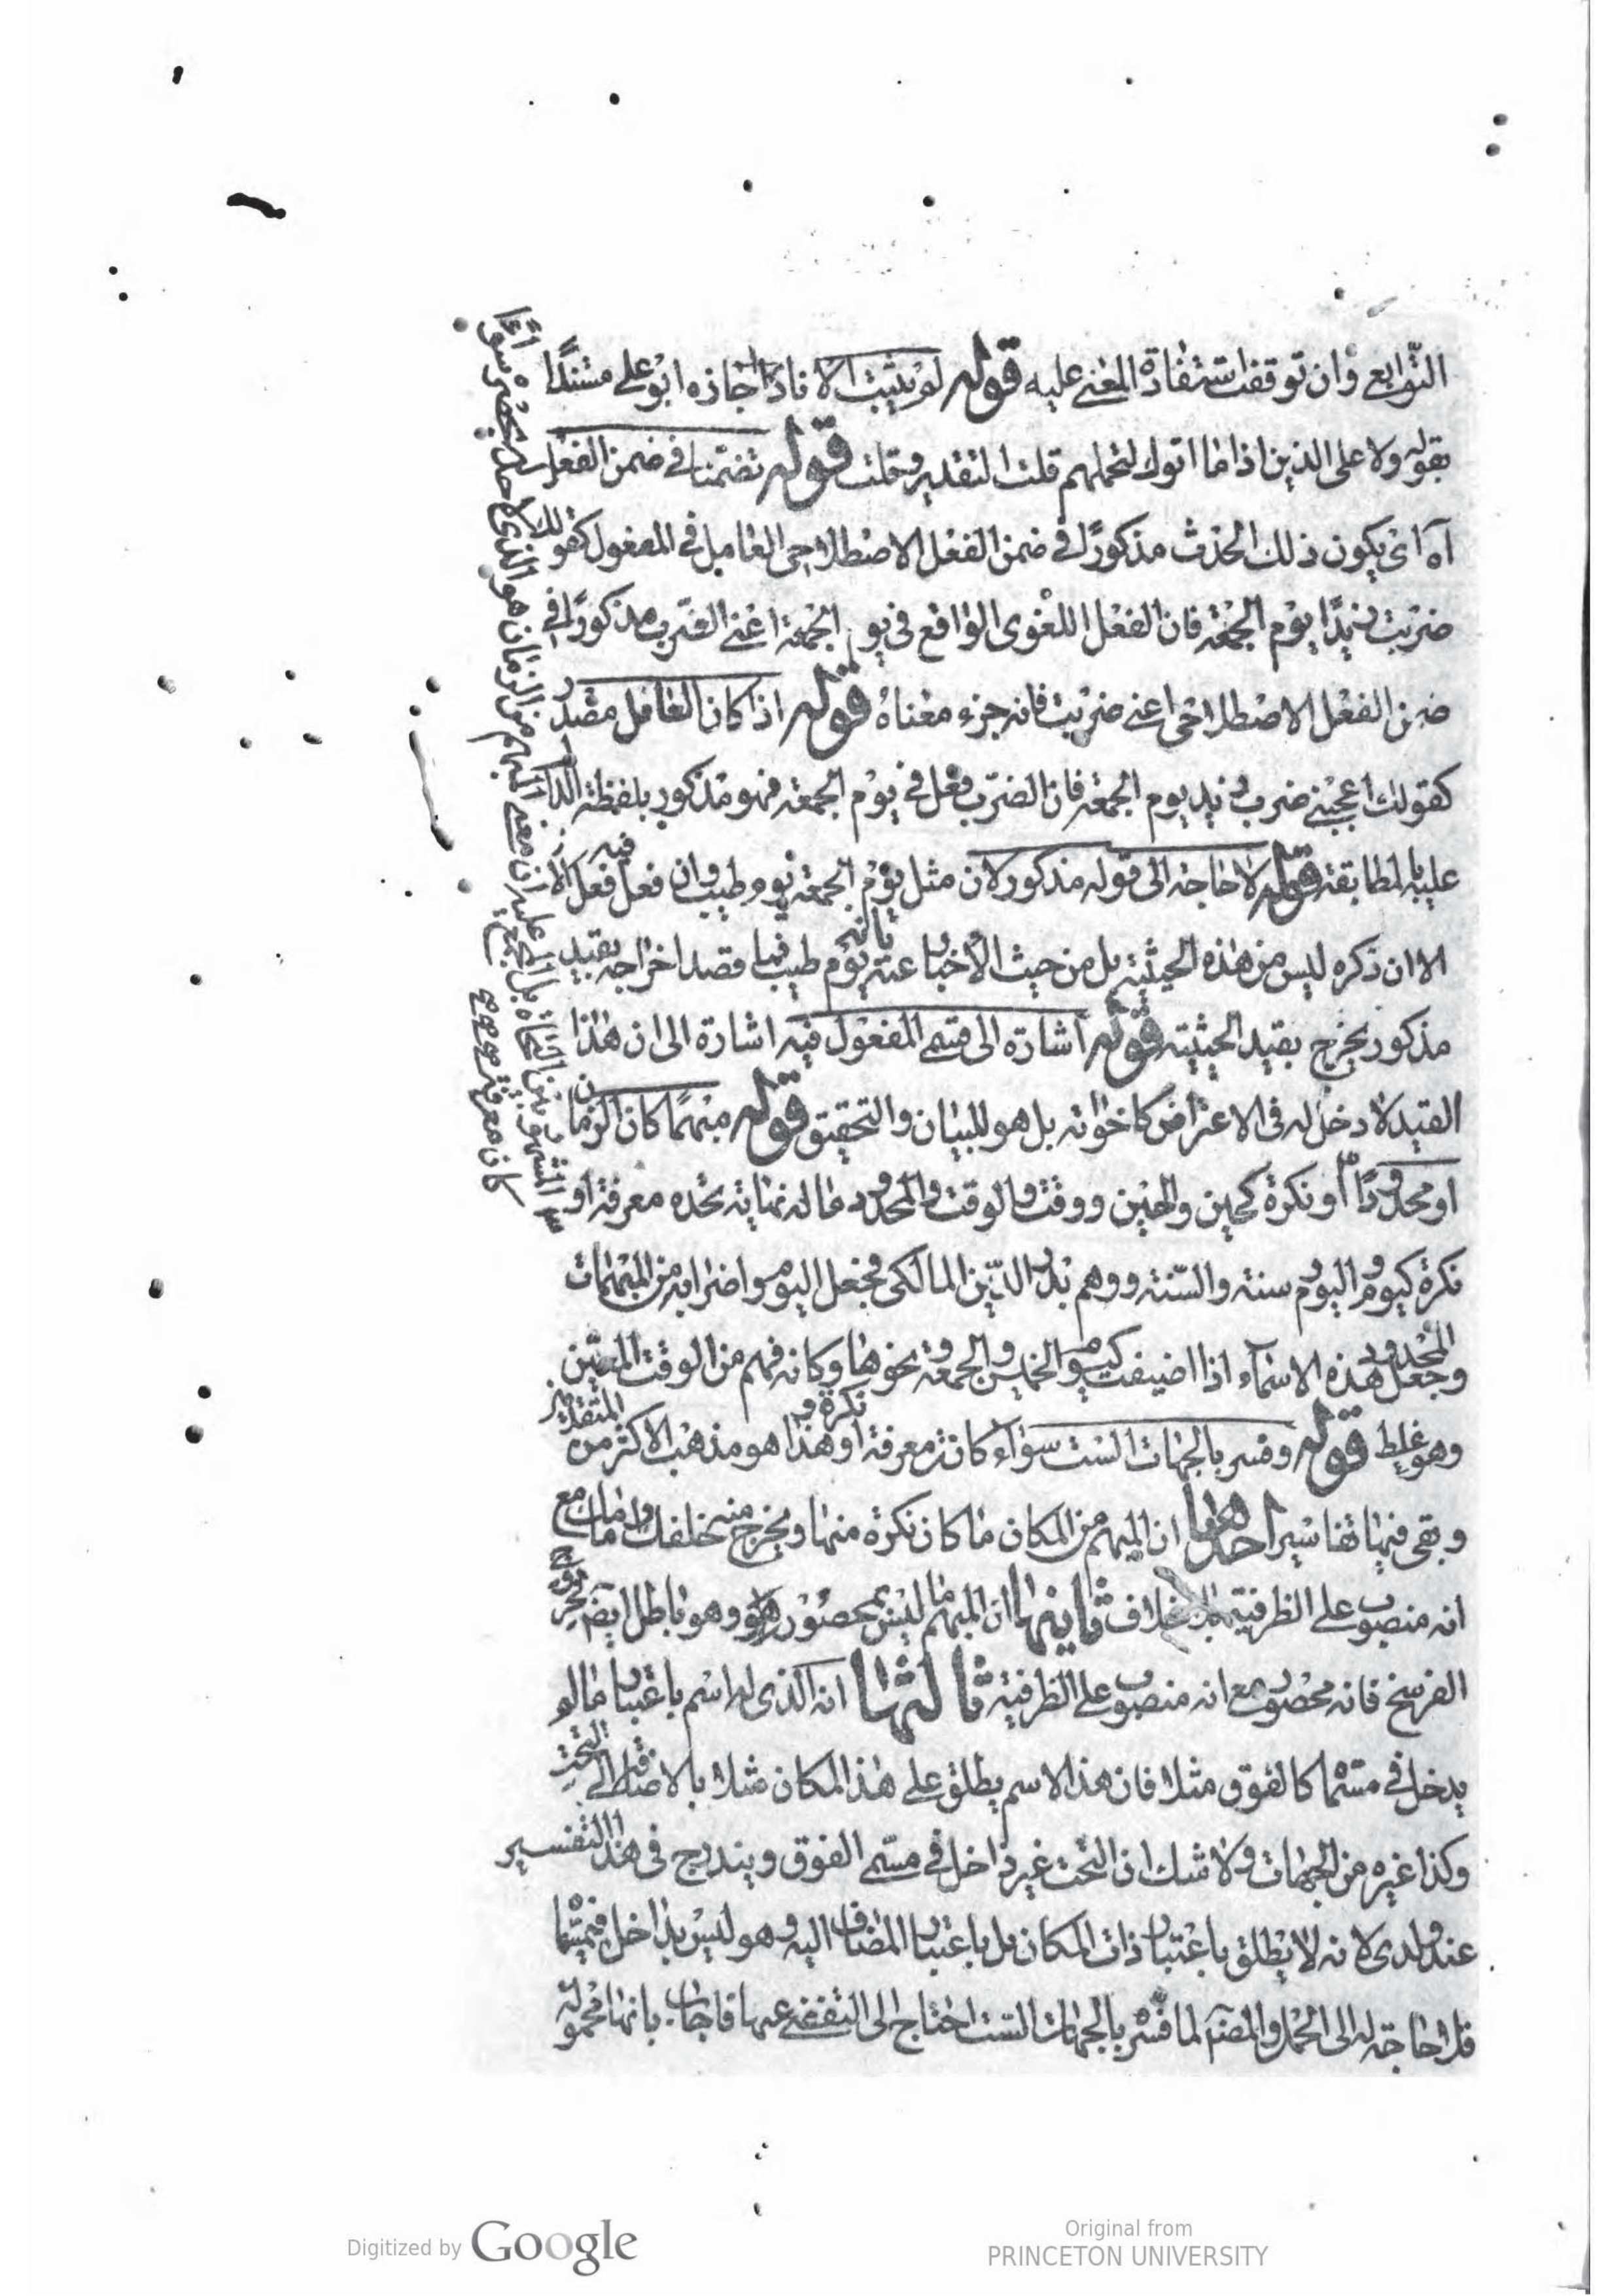 التوابع وان توقفت استفادة المعنى عليه قوله لم يثبت الا نادرا اجازه ابو على مستندًا
بقوله ولا على الذين اذا ما اتوك لتحملهم قلت التقدير وقلت قوله تضمنا فى ضمن الفعل
آه اى يكون ذلك الحدث مذكورًا فى ضمن الفعل الاصطلاحى العامل فى المفعول كقولك
ضربت زيدًا يوم الجمعة فان الفعل اللغوى الواقع فى يوم الجمعة اعنى الضرب مذكورًا فى
ضمن الفعل الاصطلاحى اعنى ضربت فانه جزء معناه قوله اذا كان العامل مصدر
كقولك اعجبنى ضرب زيد يوم الجمعة فان الضرب فعل فى يوم الجمعة فهو مذكور بلفظه الدال
عليه بالمطابقة قوله لا حاجة الى قوله مذكور لان مثل يوم الجمعة يوم طيب وان فعل فيه فعل
الا ان ذكره ليس من هذه الحيثية بل من حيث الأخبار عنه بانه يوم طيب فما قصد اخراجه بقيد
مذكور يخرج بقيد الحيثية قوله اشارة الى قسمى المفعول فيه اشارة الى ان هذا
القيد لا دخل له فى الاعتراض كاخواته بل هو للبيان والتحقيق قوله مبهما كان الزمان
او محدودًا او نكرة كحين والحين ووقت والوقت والمحدود ما له نهاية تحده معرفة او
نكرة كيوم واليوم وسنة والسنة ووهم بدر الدين المالكى فجعل اليوم واضرابه من المبهمات
وجعل المحدود هذه الاسماء اذا اضيفت كيوم الخميس والجمعة ونحوها وكانه فهم من الوقت المعين
وهو غلط قوله وفسر بالجهات الست سواء كانت معرفة او نكرة وهذا هو مذهب الاكثر من المتقدمين
وبقى فيها تفاسير احدها ان المبهم من المكان ما كان نكرة منها ويخرج منه خلفك وامامك مع
انه منصوب على الظرفية بلا خلاف ثانيها ان المبهم ما ليس بمحصور وهو باطل ايضً بخروج
الفرسخ فانه محصور مع انه منصوب على الظرفية ثالثها انه الذى له اسم باعتبار ما لو
يدخل فى مسماه كالفوق مثلا فان هذا الاسم يطلق على هذا المكان مثلا بالاضافة الى التحت
وكذا غيره من الجهات ولا شك ان التحت غير داخل فى مسمى الفوق ويندرج فى هذا التفسير
عند ولدى لانه لا يطلق باعتبار ذات المكان بل باعتبار المضاف اليه وهو ليس بداخل فى مسماه
فلا حاجة له الى الحمل والمصنف لما فسره بالجهات الست احتاج الى التفصى عنها فاجاب بانها محمولة
Digitized by Google
Original from
PRINCETON UNIVERSITY